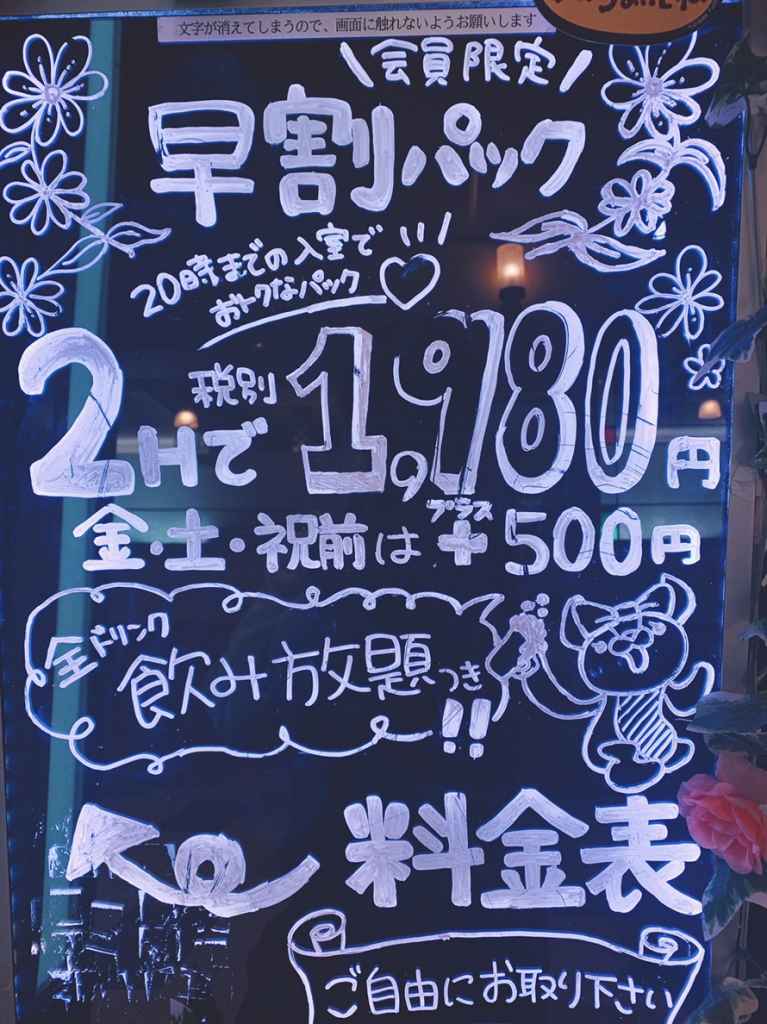 文字が消えてしまうので、画面に触れないようお願いします
\会員限定/
早割パック
20時までの入室で
おトクなパック
2Hで税別1,980円
金・土・祝前は+プラス500円
全ドリンク
飲み放題つき!!
料金表
ご自由にお取り下さい